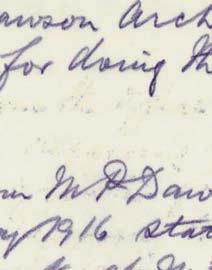 awson Arch
for doing th
um M P Daw
y 1916 stat